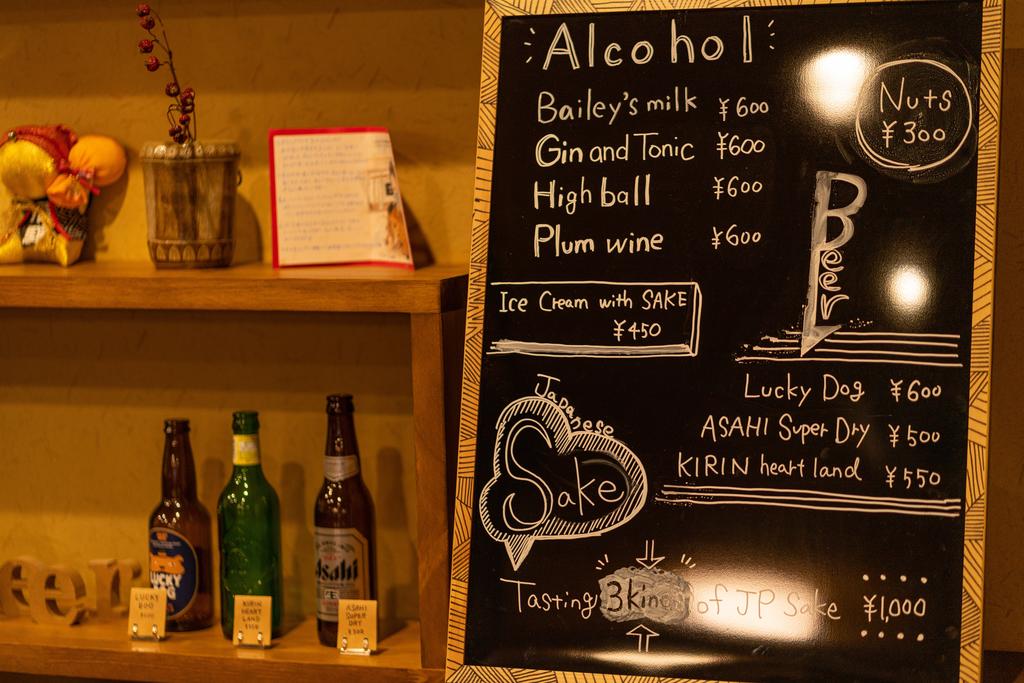 Alcohol
Bailey's milk ¥600
Gin and Tonic ¥600
High ball ¥600
Plum wine ¥600
Nuts
¥300
Beer
Ice Cream with SAKE
¥450
Lucky Dog ¥600
ASAHI Super Dry ¥500
KIRIN heart land ¥550
Japanese
Sake
Tasting 3 kind of JP Sake ¥1,000
eer
LUCKY
DOG
Asahi
LUCKY
DOG
KIRIN
HEART
LAND
ASAHI
SUPER
DRY